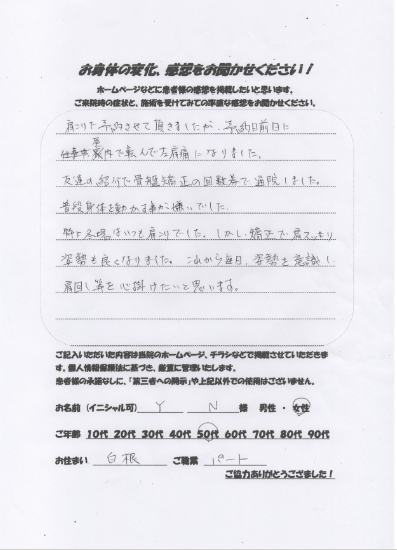 お身体の変化、感想をお聞かせください！
ホームページなどに患者様の感想を掲載したいと思います。
ご来院時の症状と、施術を受けてみての率直な感想をお聞かせください。
肩こりで予約させて頂きましたが、予約日前日に
仕事中 案内で転んで左肩痛になりました。
友達の紹介で骨盤矯正の回数券で通院しました。
普段身体を動かす事が嫌いでした。
特に冬場はいつも肩こりでした。しかし矯正で肩スッキリ
姿勢も良くなりました。これから毎日、姿勢を意識し、
肩回し等を心掛けたいと思います。
ご記入いただいた内容は当院のホームページ、チラシなどで掲載させていただきま
す。個人情報保護法に基づき、厳重に管理いたします。
患者様の承諾なしに、「第三者への開示」や上記以外での使用はございません。
お名前（イニシャル可） Y N 様 男性 ・ 女性
ご年齢 10代 20代 30代 40代 50代 60代 70代 80代 90代
お住まい 白根 ご職業 パート
ご協力ありがとうござました！